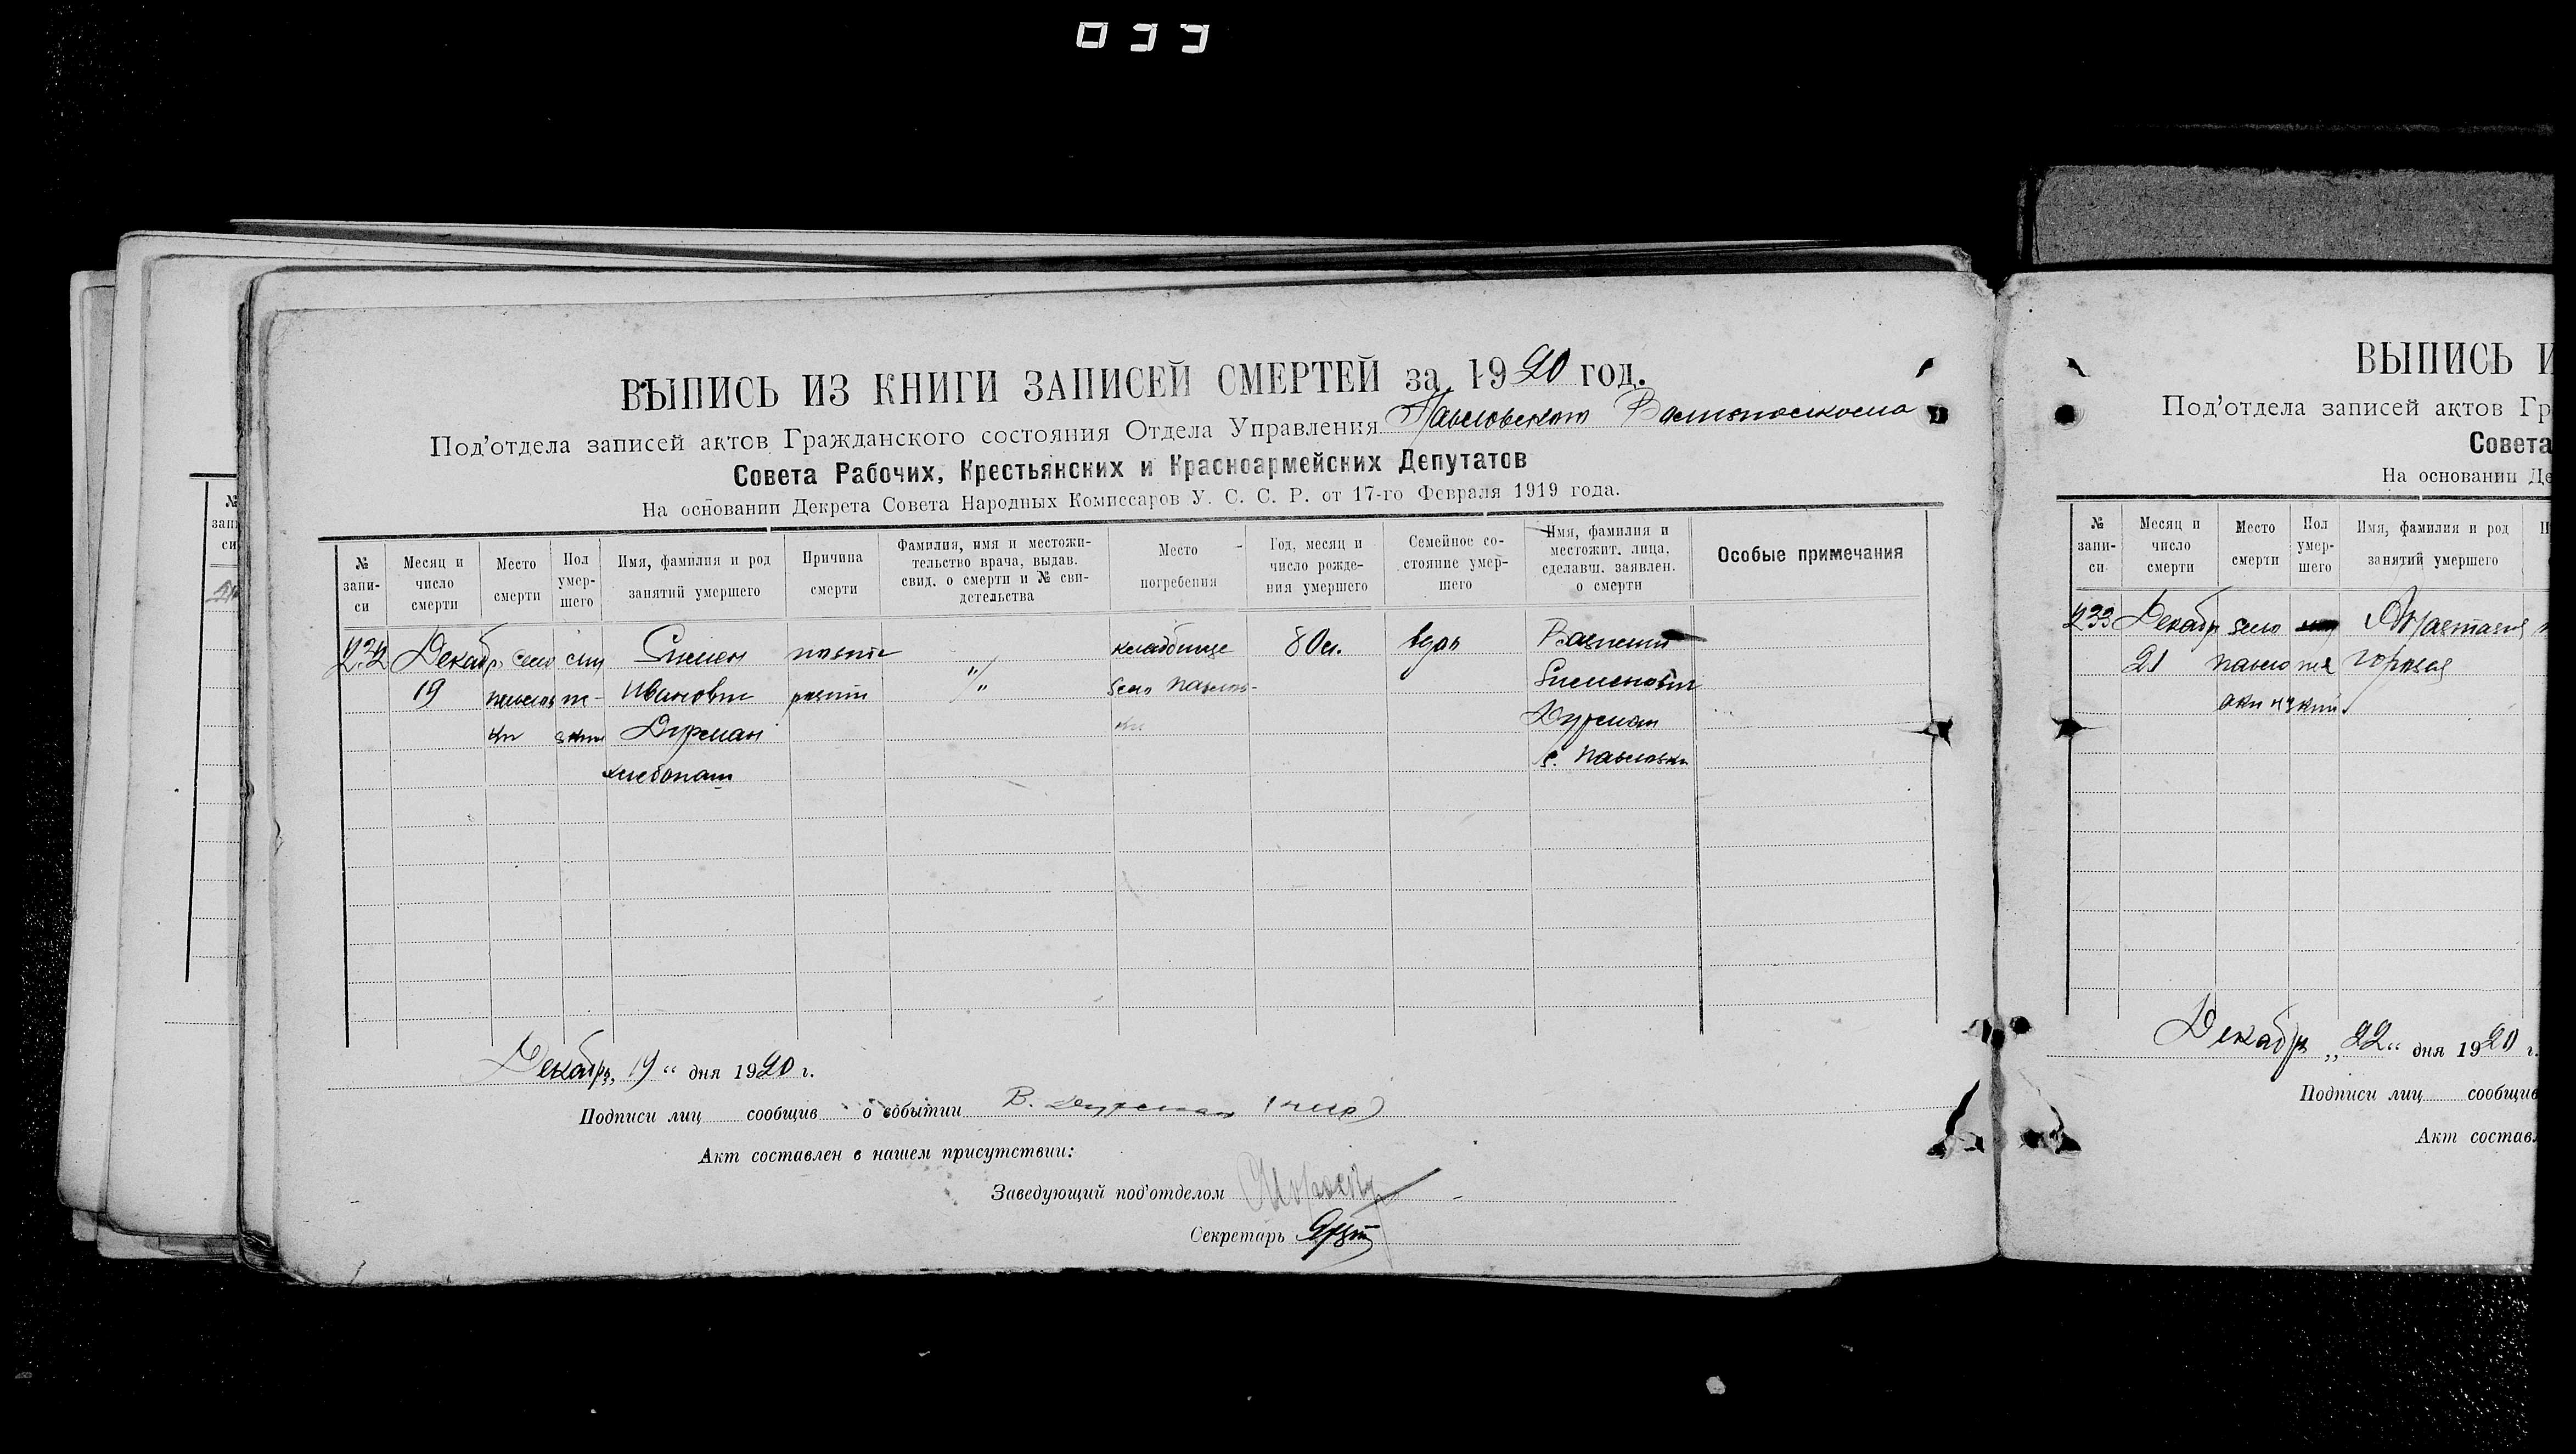 033
ВЫПИСЬ ИЗ КНИГИ ЗАПИСЕЙ СМЕРТЕЙ за 1920 год.
Под'отдела записей актов Гражданского состояния Отдела Управления Павловского
Совета Рабочих, Крестьянских и Красноармейских Депутатов
На основании Декрета Совета Народных Комиссаров У. С. С. Р. от 17-го Февраля 1919 года.
№ запи-си
Месяц и число смерти
Место смерти
Пол умер-шего
Имя, фамилия и род занятий умершего
Причина смерти
Фамилия, имя и местожи-тельство врача, выдав. свид. о смерти и № сви-детельства
Место погребения
Год, месяц и число рожде-ния умершего
Семейное со-стояние умер-шего
Имя, фамилия и местожит. лица, сделавш. заявлен. о смерти
Особые примечания
232 Декабр село Симен кладбище 80 л. вдов
19 Иванович село Павлов- Сименович
ки Дурман ки Дурман
хлебопаш с. Павловки
Декабр, 19 " дня 1920 г.
Подписи лиц сообщив о событии В. Дурман
Акт составлен в нашем присутствии:
Заведующий под'отделом
Секретарь
ВЫПИСЬ И
Под'отдела записей актов Гр
Совета
На основании Де
№ запи-си
Месяц и число смерти
Место смерти
Пол умер-шего
Имя, фамилия и род занятий умершего
233 Декабр село
21
Декабр „ 22 " дня 1920 г.
Подписи лиц сообщив
Акт состав